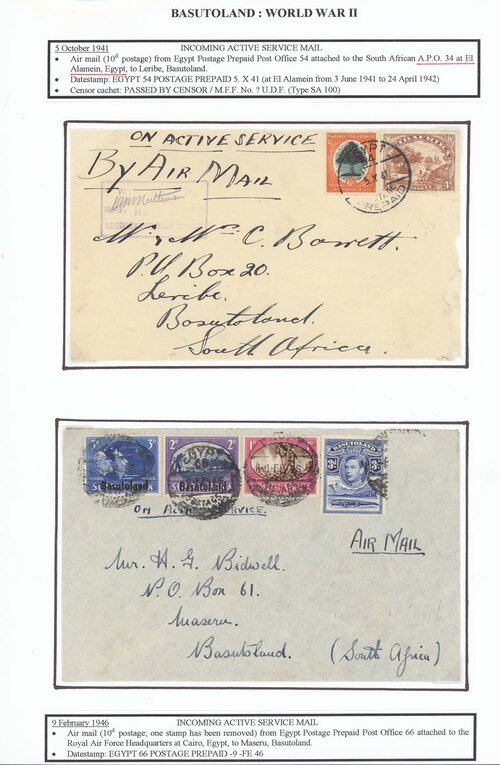 BASUTOLAND : WORLD WAR II
5 October 1941 INCOMING ACTIVE SERVICE MAIL
• Air mail (10d postage) from Egypt Postage Prepaid Post Office 54 attached to the South African A.P.O. 34 at El
Alamein, Egypt, to Leribe, Basutoland.
• Datestamp: EGYPT 54 POSTAGE PREPAID 5. X 41 (at El Alamein from 3 June 1941 to 24 April 1942)
• Censor cachet: PASSED BY CENSOR / M.F.F. No. ? U.D.F. (Type SA 100)
ON ACTIVE SERVICE
By AIR MAIL
Mr & Mrs C. Barrett.
P.O. Box 20.
Leribe.
Basutoland.
South Africa.
3D 2D 1D BASUTOLAND
EGYPT
Basutoland Basutoland
ON ACTIVE SERVICE.
AIR MAIL
Mr. H. G. Bidwell.
P.O. Box 61.
Maseru.
Basutoland.
(South Africa)
9 February 1946 INCOMING ACTIVE SERVICE MAIL
• Air mail (10d postage; one stamp has been removed) from Egypt Postage Prepaid Post Office 66 attached to the
Royal Air Force Headquarters at Cairo, Egypt, to Maseru, Basutoland.
• Datestamp: EGYPT 66 POSTAGE PREPAID -9 -FE 46